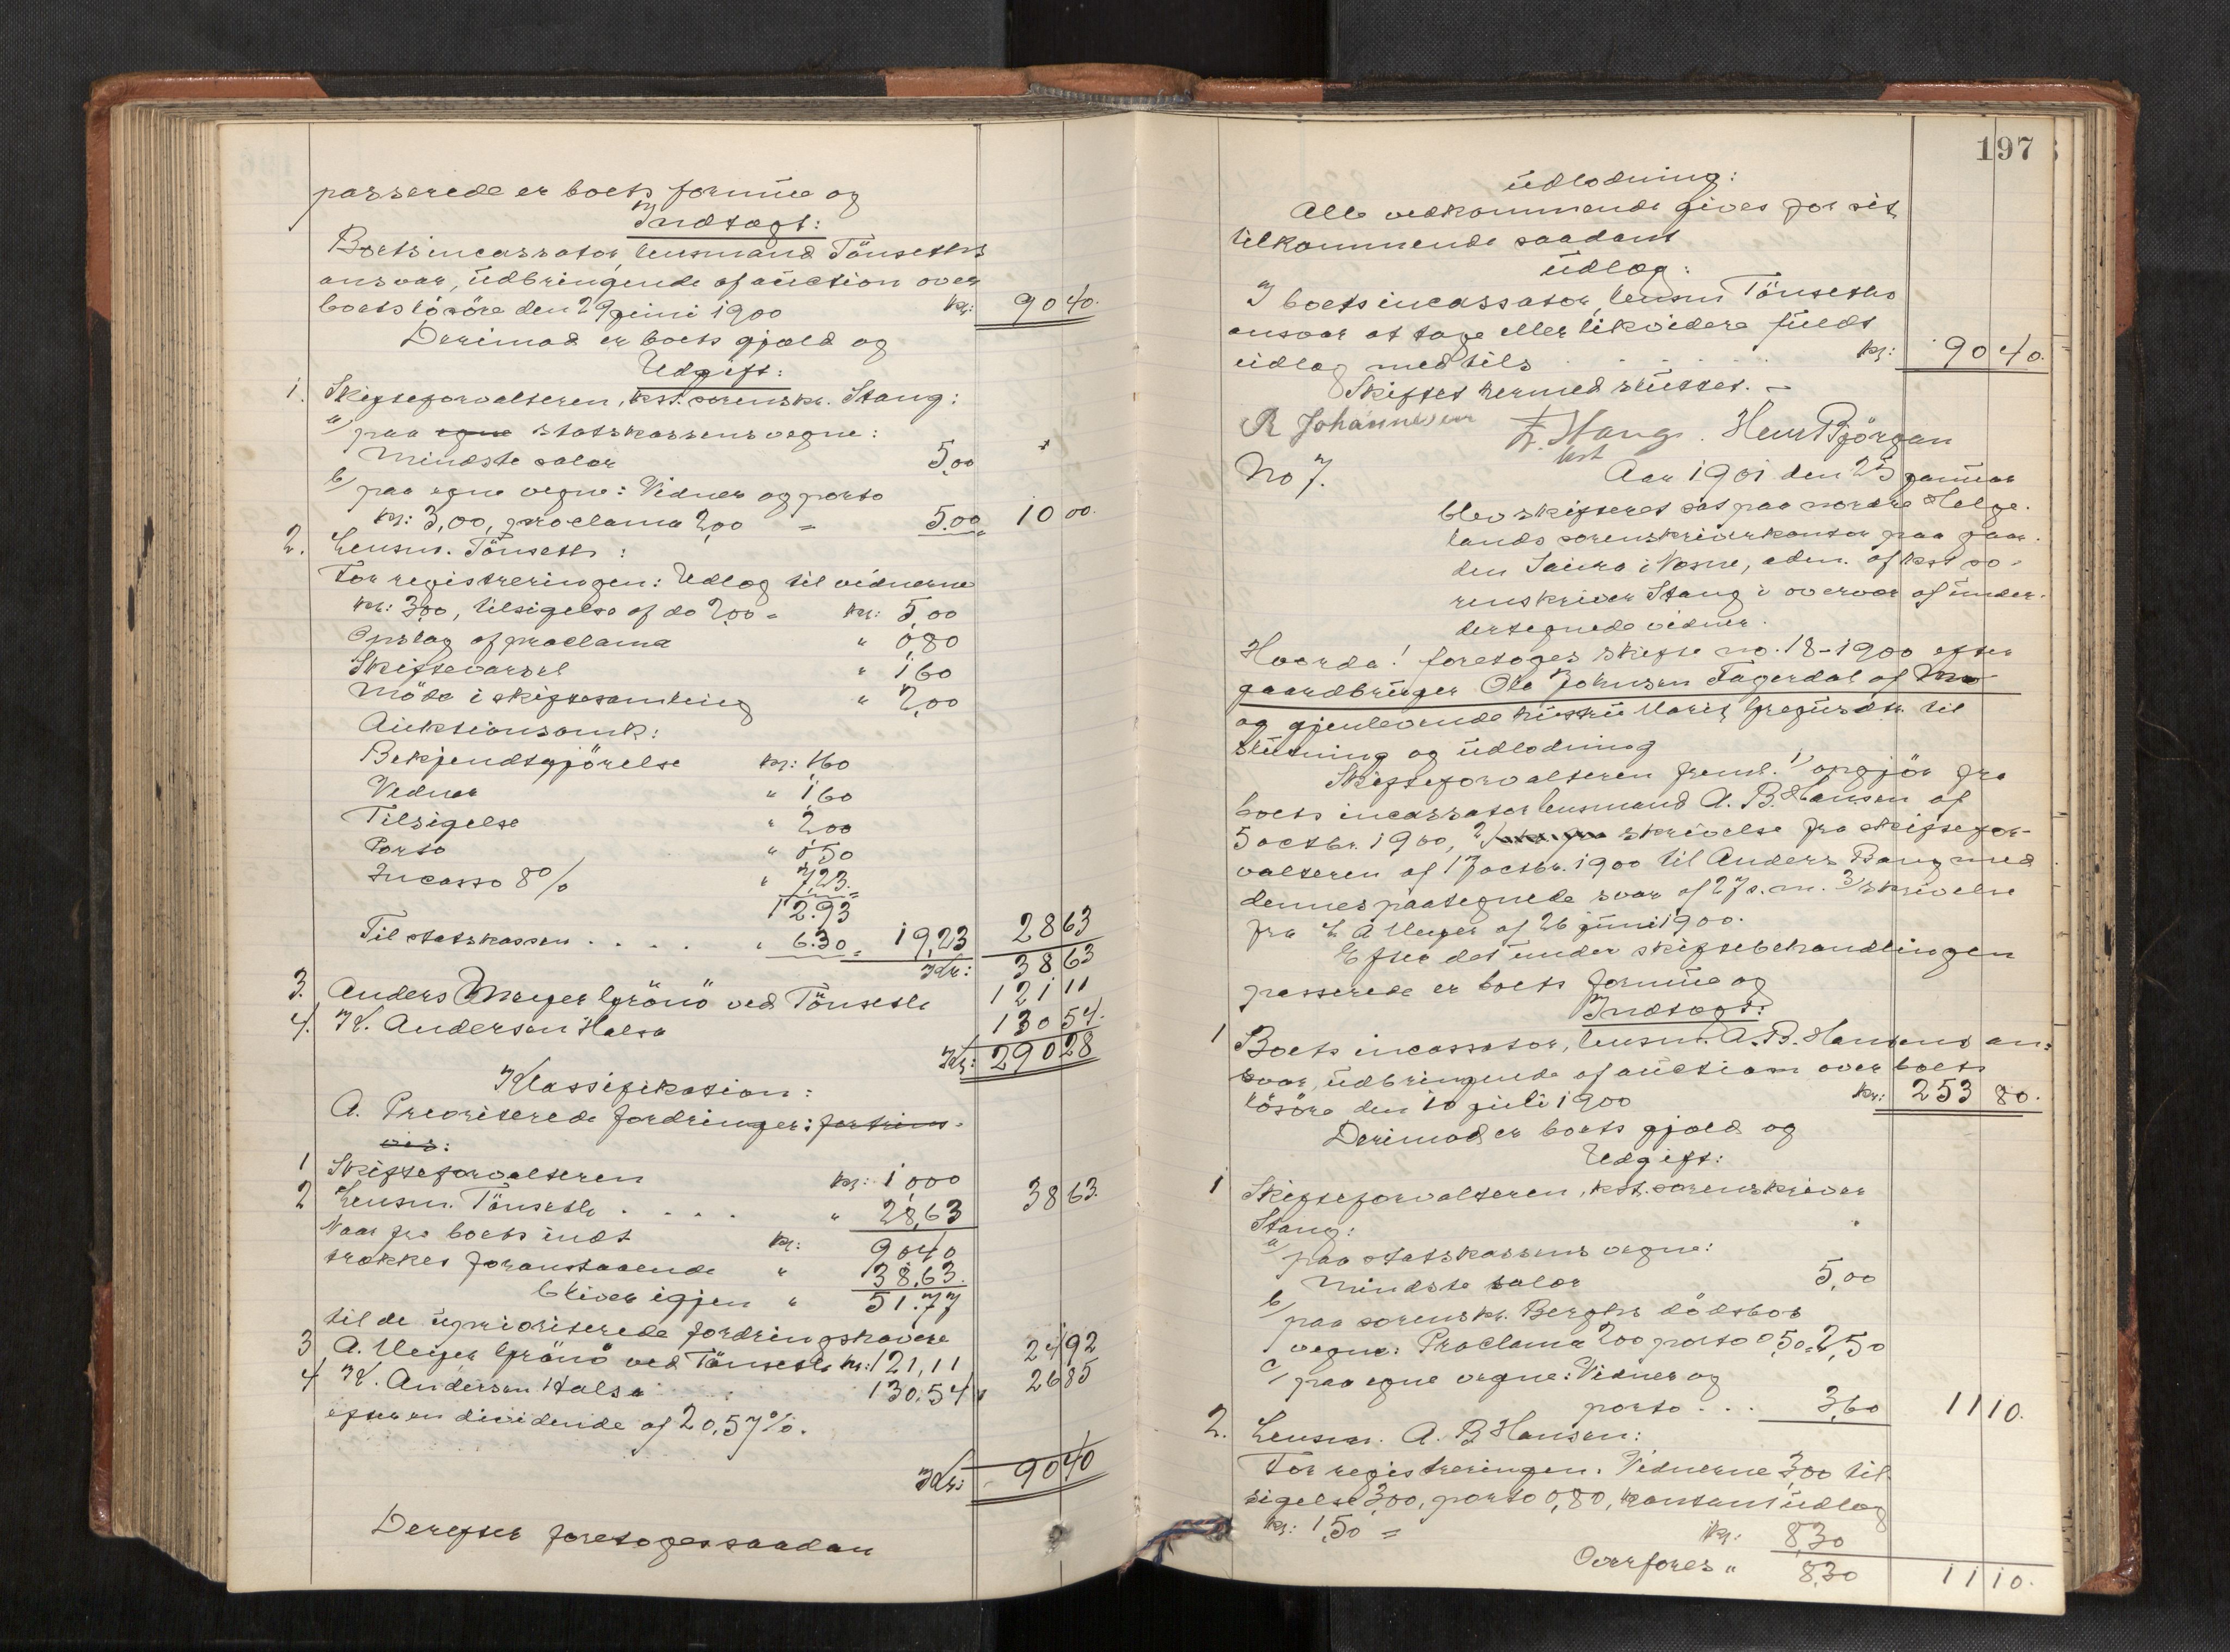 passerede er boets formue og
Indtægt:
Boets incassator, lensmand Tönseths
ansvar, udbringende af auction over
boets lösöre den 29 juni 1900 kr: 90 40.
Derimod er boets gjæld og
Udgift:
1. Skifteforvalteren, kst. sorenskr. Stang:
a/ paa egne statskassens vegne:
Mindste salær 5,00
b/ paa egne vegne: Vidner og porto
kr: 3,00, proclama 2,00 = 5.00 10 00.
2. Lensm. Tönseth:
For registreringen: Udlæg til vidnerne
kr: 3,00, tilsigelse af do 2,00 = kr: 5,00
Opslag af proclama " 0,80
Skiftevarsel " 1,60
Möde i skiftesamling " 2,00
Auktionsomk:
Bekjendtgjörelse kr: 1,60
Vidner " 1,60
Tilsigelse " 2,00
Porto " 0,50
Incasso 8% " 7,23.
12.93
Til statskassen . . . . " 6.30 = 19,23 28 63
Kr: 38 63
3. Anders Meyer Grönö ved Tönseth 121 11
4. K. Andersen Halsa 130 54.
Kr: 290 28
Klassifikation:
A. Prioriterede fordringer: fortrins-
vis:
1 Skifteforvalteren kr: 10,00
2 Lensm. Tönseth . . . . " 28,63 38 63.
Naar fra boets indt kr: 90 40
trækkes foranstaaende " 38,63.
bliver igjen " 51.77
til de uprioriterede fordringshavere
3 A. Meyer Grönö ved Tönseth kr: 121,11 24 92
4 K. Andersen Halsa . . 130.54 26 85
efter en dividende af 20,57%.
Kr: 90 40
Derefter foretoges saadan
197
udlodning:
Alle vedkommende gives for sit
tilkommende saadant
udlæg:
I boets incassator, lensm Tönseths
ansvar at tage eller likvidere fuldt
udlæg med tils . . . . . . kr: 90 40.
Skiftet hermed sluttet. –
R Johannesen F. Stang. Henr Björgan
kst
No 7. Aar 1901 den 25 januar
blev skifteret sat paa nordre Helge-
lands sorenskriverkontor paa gaar-
den Saura i Nesne, adm. af kst so-
renskriver Stang i overvær af under-
dertegnede vidner.
Hvorda! foretoges skifte no. 18-1900 efter
gaardbruger Ole Johnsen Fagerdal af Mo
og gjenlevende hustru Marit Gregusdtr. til
slutning og udlodning
Skifteforvalteren freml. 1) opgjör fra
boets incassator lensmand A. B. Hansen af
5 octbr. 1900, 2/ skrivelse fra skiftefor-
valteren af 17 octbr. 1900 til Anders Bang med
dennes paategnede svar af 27 s. m. 3/ skrivelse
fra L A Meyer af 26 juni 1900.
Efter det under skiftebehandlingen
passerede er boets formue og
Indtægt:
1 Boets incassator, lensm. A. B. Hansens an-
svar, udbringende af auction over boets
lösöre den 10 juli 1900 kr: 253 80.
Derimod er boets gjæld og
Udgift:
1 Skifteforvalteren, kst. sorenskriver
Stang:
a/ paa statskassens vegne:
Mindste salær 5,00
b/ paa sorenskr. Berghs dödsbos
vegne: Proclama 2,00 porto 0,50 = 2,50
c/ paa egne vegne: Vidner og
porto . . . 3,60 11 10.
2. Lensm. A. B Hansen:
For registreringen. Vidnerne 3,00 til-
sigelse 3,00, porto 0,80, kontant udlæg
kr: 1,50 = kr: 8,30
Overföres " 8,30 11 10.